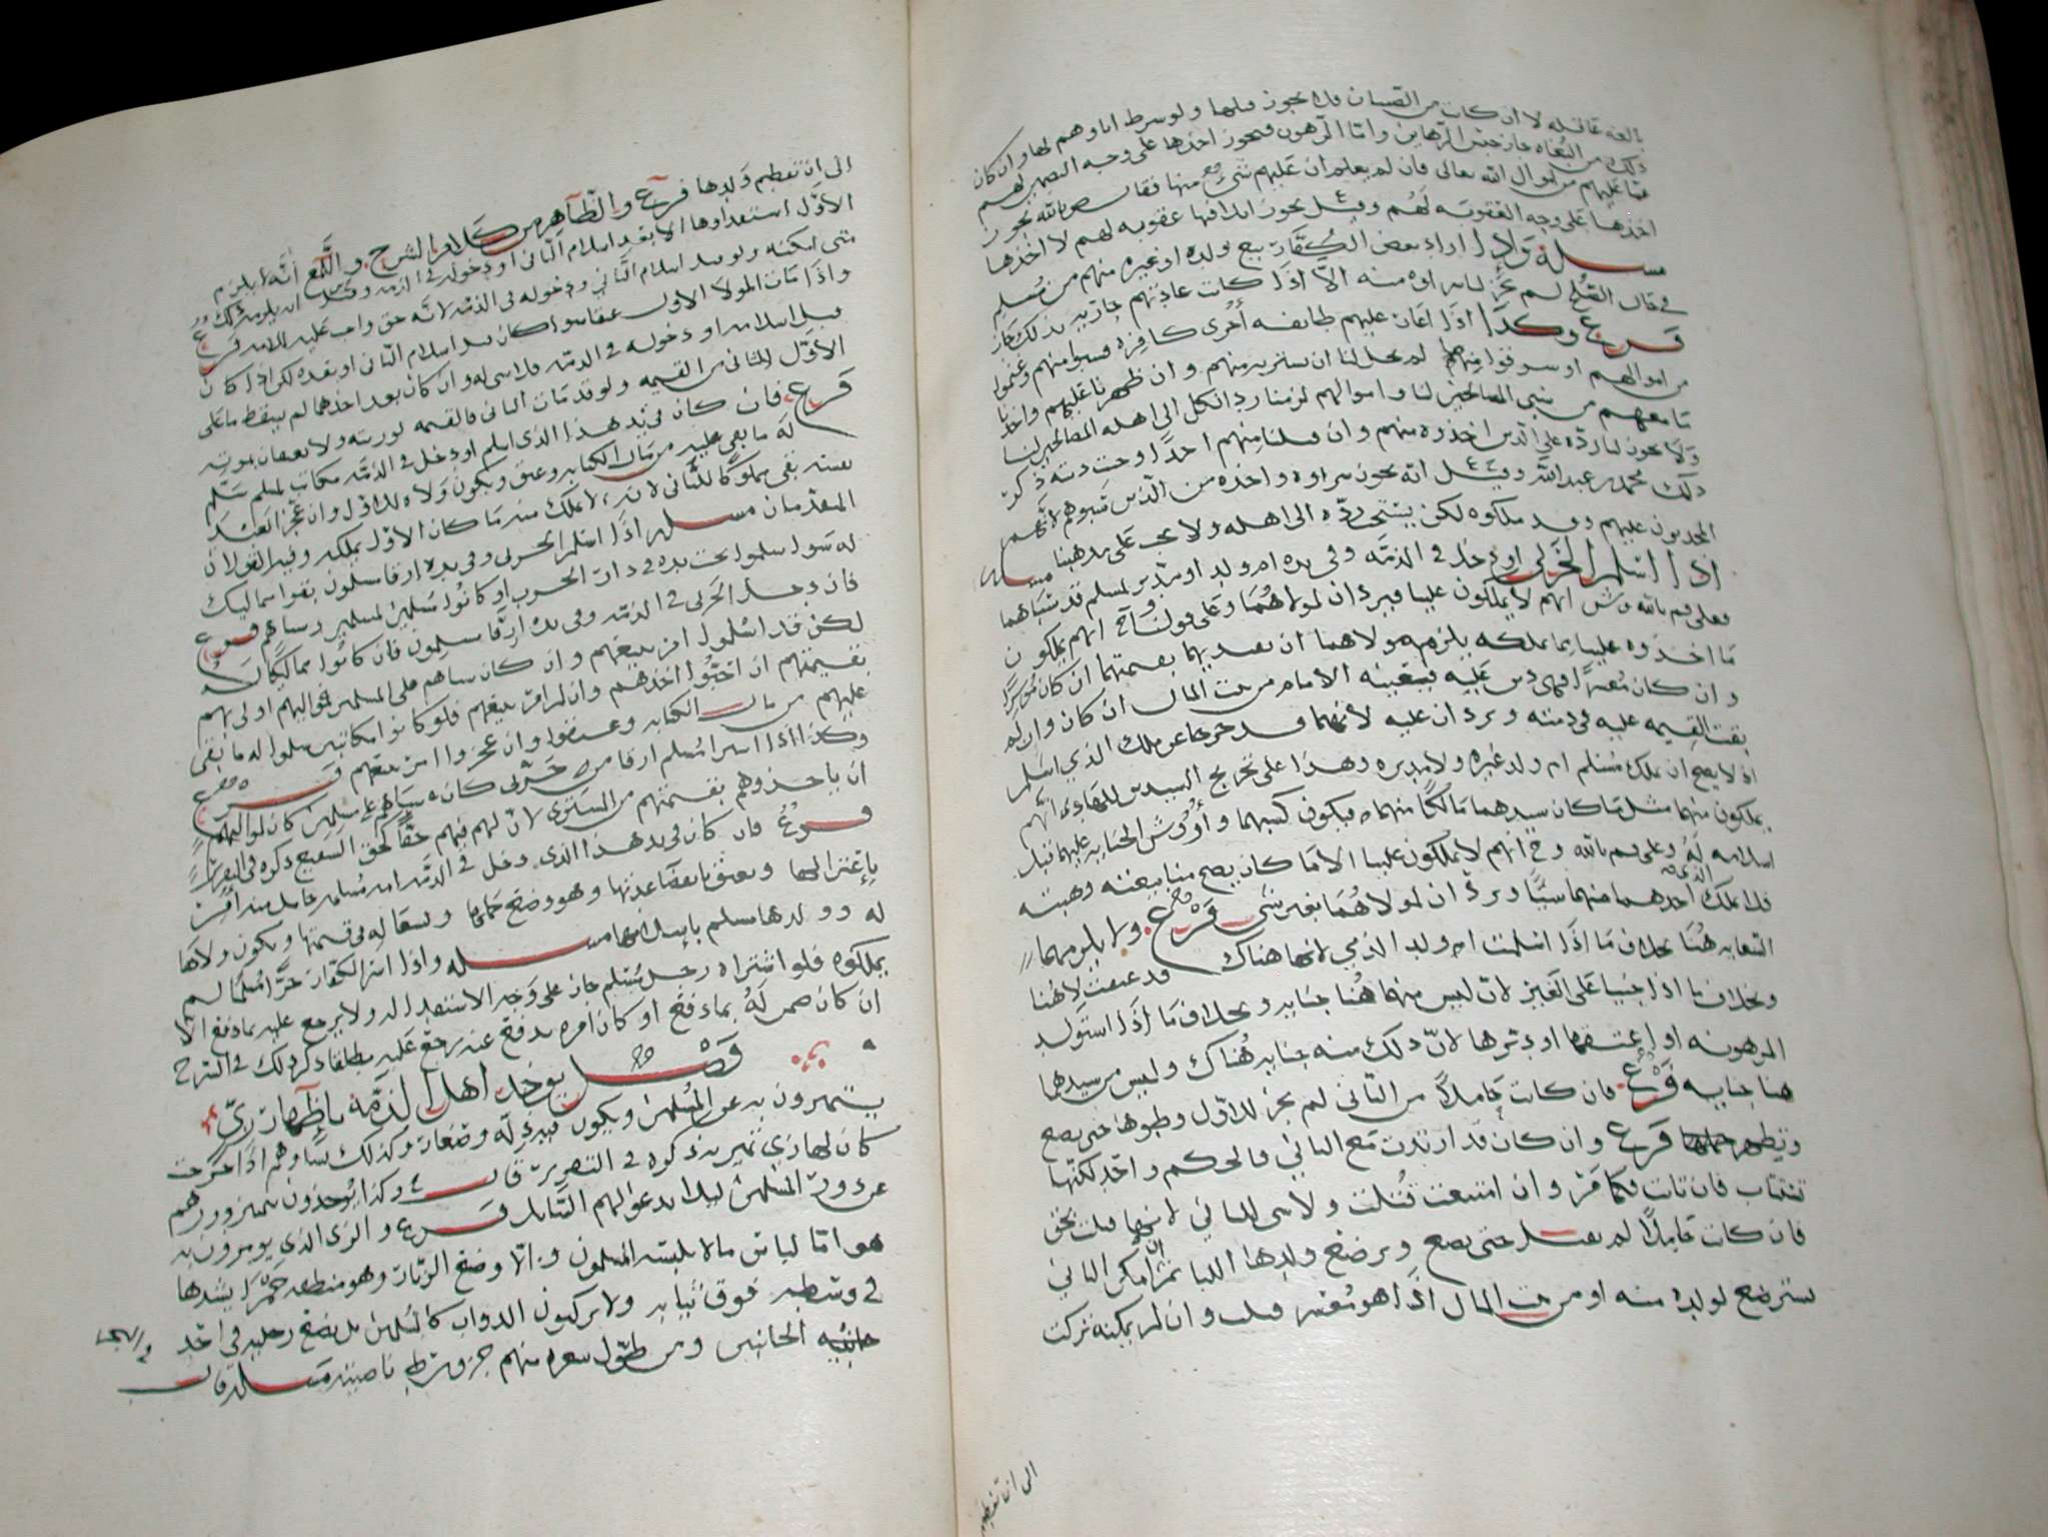 بالغه عاقله لا ان كانت من الصبيان فلا يجوز قبلها ولو شرط اباوهم لها وان كان
ذلك من البغاه جاز حبس الرهاين واما الرهون فيجوز اخذها على وجه التضمين لهم
عما عليهم من اموال الله تعالى فان لم يعلم ان عليهم شي منها فقال م بالله يجوز
اخذها على وجه العقوبه لهم وقيل يجوز اتلافها عقوبه لهم لا اخذها
مسله واذا اراد بعض الكفار بيع ولده او غيره منهم من مسلم
في حال الصلح لم يجز لنا شراوه منه الا اذا كانت عادتهم جاريه بذلك جاز
فرع وكذا اذا اغار عليهم طايفه اخرى كافره فسبوا منهم وغنموا
من اموالهم او سرقوا منهم لم يحل لنا ان نشتريه منهم وان ظهرنا عليهم واخذنا
ما معهم من سبي المصالحين لنا واموالهم لزمنا رد الكل الى اهله المصالحين لنا
ولا يجوز لنا رده على الذين اخذوه منهم وان قتلنا منهم احدا وجبت ديته ذكر
ذلك محمد بن عبدالله وقيل انه يجوز شراوه واخذه من الذين سبوهم لانهم
المجدبون عليهم وقد ملكوه لكن يستحب رده الى اهله ولا يجب على مذهبنا مسله
اذا اسلم الحربي او دخل في الذمه وفي يده ام ولد او مدبر لمسلم قد سباهما
فعلى قول م بالله وش انهم لا يملكون علينا فيردان لمولاهما وعلى قولنا وح انهم يملكون
ما اخذوه علينا مما نملكه يلزم مولاهما ان يفديهما بقيمتهما ان كان موسرا
وان كان معسرا فهي دين عليه فيقضيه الامام من بيت المال ان كان وان لم
بقيت القيمه عليه في ذمته ويردان عليه لانهما قد خرجا عن ملك الذي اسلم
اذ لا يصح ان يملك مسلم ام ولد غيره ولا مدبره وهذا على تخريج السيدين للهادي انهم
يملكون منهما مثل ما كان سيدهما مالكا منهما فيكون كسبهما واروش الجنايه عليهما قبل
اسلامه له وعلى قول م بالله وح انهم لا يملكون علينا الا ما كان يصح منا بيعه وهبته
فلا يملك الذمي احدهما منهما شيا ويردان لمولاهما بغير شي فرع ولا يلزمهما
السعايه هنا بخلاف ما اذا اسلمت ام ولد الذمي لانها هناك قد عتقت لا هنا
وبخلاف ما اذا جنيا على الغير لان ليس منهما هنا جنايه وبخلاف ما اذا استولد
المرهونه او اعتقها او دبرها لان ذلك منه جنايه هناك وليس من سيدهما
هنا جنايه فرع فان كانت حاملا من الثاني لم يجز للاول وطيوها حتى تضع
وتطهر فرع وان كان قد ارتدت مع الثاني فالحكم واحد لكنها
تستتاب فان تابت فكما مر وان امتنعت قتلت ولا شي للثاني لانها قتلت بحق
فان كانت حاملا لم تقتل حتى تضع وترضع ولدها اللبا ثم ان امكن الثاني
يسترضع لولده منه او من بيت المال اذا هو معسر قتلت وان لم يمكنه تركت
الى ان تفطم
الى ان تفطم ولدها فرع والظاهر من كلام الشرح واللمع انه لا يلزم
الاول استفداوها الا بعد اسلام الثاني او دخوله في الذمه وقيل ان يلزمه ذلك
متى امكنه ولو قبل اسلام الثاني ودخوله في الذمه لانه حق واجب عليه للامه فرع
واذا مات المولا الاول عتقا سوا كان قبل اسلام الثاني او بعده لكن اذا كان
قبل اسلامه او دخوله في الذمه فلا شي له وان كان بعد احدهما لم يسقط ما على
الاول للثاني من القيمه ولو قد مات الثاني فالقيمه لورثته ولا يعتقان بموته
فرع فان كان في يد هذا الذي اسلم او دخل في الذمه مكاتب لمسلم سلم
له ما بقي عليه من مال الكتابه وعتق ويكون ولاه للاول وان عجز العبد
نفسه بقي مملوكا للثاني لانه لا يملك منه ما كان الاول يملكه وفيه القولان
المتقدمان مسله اذا اسلم الحربي وفي يده ارقا مسلمون بقوا مماليك
له سوا اسلموا تحت يده في دار الحرب او كانوا مسلمين لمسلمين وسباهم فرع
فان دخل الحربي في الذمه وفي يده ارقا مسلمون فان كانوا مماليكا له
لكن قد اسلموا امر ببيعهم وان كان سباهم على المسلمين فمواليهم اولى بهم
بقيمتهم ان احبوا اخذهم وان لم امر ببيعهم فلو كانوا مكاتبين سلموا له ما بقي
عليهم من مال الكتابه وعتقوا وان عجزوا امر ببيعهم فرع
وكذا اذا اشترا مسلم ارقا من حربي كان سباهم على مسلمين كان لمواليهم
ان ياخذوهم بقيمتهم من المشتري لان لهم فيهم حقا كحق الشفيع ذكره في التقرير
فرع فان كان في يد هذا الذي دخل في الذمه امه مسلمه حامل منه امر
باعتزالها وتعتق بانقضا عدتها وهو وضع حملها وتسعا له في قيمتها ويكون ولاها
له وولدها مسلم باسلامها مسله واذا اسر الكفار حرا مسلما لم
يملكوه فلو اشتراه رجل مسلم جاز على وجه الاستنقاذ له ولا يرجع عليه بما دفع الا
ان كان ضمن له بما دفع او كان امره بدفع عنه رجع عليه مطلقا ذكر ذلك في الشرح
فصل يوخذ اهل الذمه باظهار زي
يتميزون به عن المسلمين ويكون فيه ذله وصغار وكذلك نساوهم اذا خرجت
كان لها زي تميز به ذكره في التقرير قال ع وكذا يوخذون بتميز دورهم
عن دور المسلمين ليلا يدعوا لهم السايل فرع والزي الذي يومرون به
هو اما لباس ما لا يلبسه المسلمون والا وضع الزنار وهو منطقه حمرا يشدها
في وسطه فوق ثيابه ولا يركبون الدواب كالمسلمين بل يضع رجليه في احد
الجانبين ومن طول شعره منهم جز وسط ناصيته مسله قال